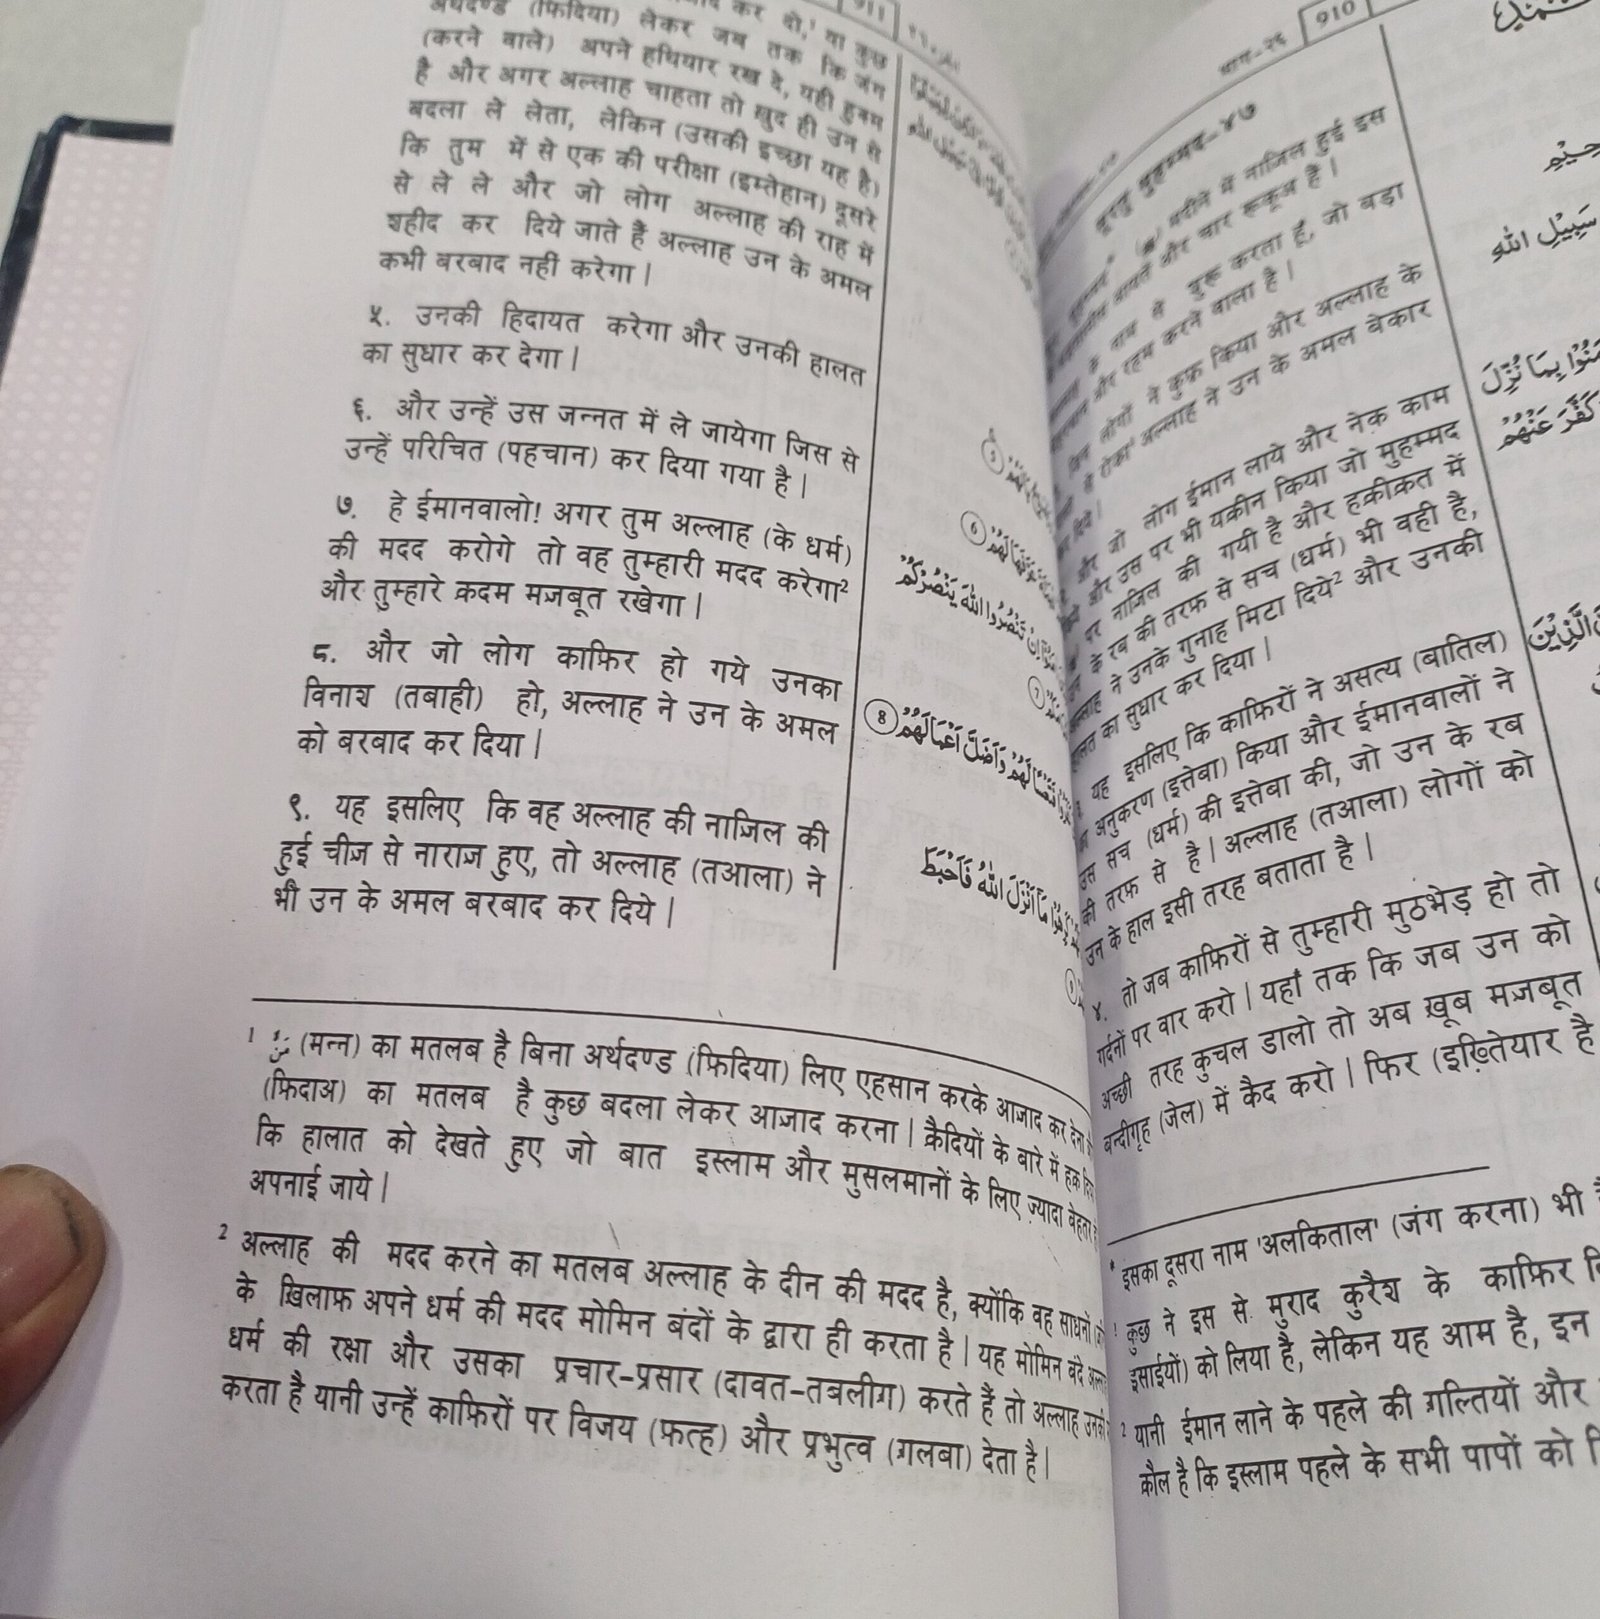 911
अर्थदण्ड (फ़िदिया) लेकर जब तक कि जंग
(करने वाले) अपने हथियार रख दे, यही हुक्म
है और अगर अल्लाह चाहता तो ख़ुद ही उन से
बदला ले लेता, लेकिन (उसकी इच्छा यह है)
कि तुम में से एक की परीक्षा (इम्तेहान) दूसरे
से ले ले और जो लोग अल्लाह की राह में
शहीद कर दिये जाते हैं अल्लाह उन के अमल
कभी बरबाद नहीं करेगा |
५. उनकी हिदायत करेगा और उनकी हालत
का सुधार कर देगा |
६. और उन्हें उस जन्नत में ले जायेगा जिस से
उन्हें परिचित (पहचान) कर दिया गया है |
७. हे ईमानवालो! अगर तुम अल्लाह (के धर्म)
की मदद करोगे तो वह तुम्हारी मदद करेगा²
और तुम्हारे क़दम मज़बूत रखेगा |
८. और जो लोग काफ़िर हो गये उनका
विनाश (तबाही) हो, अल्लाह ने उन के अमल
को बरबाद कर दिया |
९. यह इसलिए कि वह अल्लाह की नाज़िल की
हुई चीज़ से नाराज़ हुए, तो अल्लाह (तआला) ने
भी उन के अमल बरबाद कर दिये |
¹ (मन्न) का मतलब है बिना अर्थदण्ड (फ़िदिया) लिए एहसान करके आज़ाद कर देना
(फ़िदाअ) का मतलब है कुछ बदला लेकर आज़ाद करना | क़ैदियों के बारे में हक़
कि हालात को देखते हुए जो बात इस्लाम और मुसलमानों के लिए ज़्यादा बेहतर
अपनाई जाये |
² अल्लाह की मदद करने का मतलब अल्लाह के दीन की मदद है, क्योंकि वह साधनों
के ख़िलाफ़ अपने धर्म की मदद मोमिन बंदों के द्वारा ही करता है | यह मोमिन बंदे
धर्म की रक्षा और उसका प्रचार-प्रसार (दावत-तबलीग़) करते हैं तो अल्लाह उनकी
करता है यानी उन्हें काफ़िरों पर विजय (फ़त्ह) और प्रभुत्व (ग़लबा) देता है |
يَنْصُرْكُمْ
8 وَاَضَلَّ اَعْمَالَهُمْ
اَنْزَلَ اللهُ فَاَحْبَطَ
भाग-२६ 910
सूरतु मुहम्मद-४७
मदीने में नाज़िल हुई इस
और चार रूकूअ हैं |
शुरू करता हूँ, जो बड़ा
और रहम करने वाला है |
लोगों ने कुफ़्र किया और अल्लाह के
रोका अल्लाह ने उन के अमल बेकार
कर दिये |
और जो लोग ईमान लाये और नेक काम
किये और उस पर भी यक़ीन किया जो मुहम्मद
पर नाज़िल की गयी है और हक़ीक़त में
उन के रब की तरफ़ से सच (धर्म) भी वही है,
अल्लाह ने उनके गुनाह मिटा दिये² और उनकी
हालत का सुधार कर दिया |
३. यह इसलिए कि काफ़िरों ने असत्य (बातिल)
का अनुकरण (इत्तेबा) किया और ईमानवालों ने
उस सच (धर्म) की इत्तेबा की, जो उन के रब
की तरफ़ से है | अल्लाह (तआला) लोगों को
उन के हाल इसी तरह बताता है |
४. तो जब काफ़िरों से तुम्हारी मुठभेड़ हो तो
गर्दनों पर वार करो | यहाँ तक कि जब उन को
अच्छी तरह कुचल डालो तो अब ख़ूब मज़बूत
बन्दीगृह (जेल) में कैद करो | फिर (इख़्तियार है
* इसका दूसरा नाम 'अलकिताल' (जंग करना) भी
¹ कुछ ने इस से मुराद कुरैश के काफ़िर
इसाईयों) को लिया है, लेकिन यह आम है, इन
² यानी ईमान लाने के पहले की ग़ल्तियों और
क़ौल है कि इस्लाम पहले के सभी पापों को
سَبِيْلِ اللهِ
بِمَا نُزِّلَ
كَفَّرَ عَنْهُمْ
الَّذِيْنَ